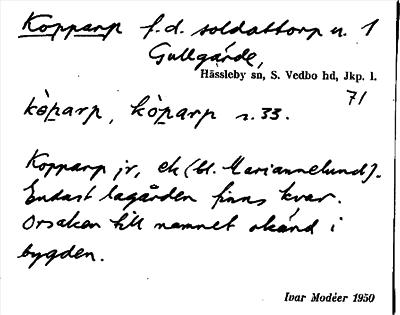 Kopparp f.d. soldattorp u. 1
Gullgärde,
Hässleby sn, S. Vedbo hd, Jkp. l.
71
kòparp, kòparp r. 33.
Kopparp jr, ek (bl. Mariannelund).
Endast lagården finns kvar.
Orsaken till namnet okänd i
bygden.
Ivar Modéer 1950